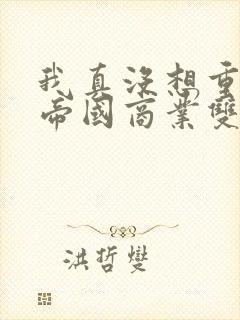 我真没想重
帝國商業雙
洪哲燮